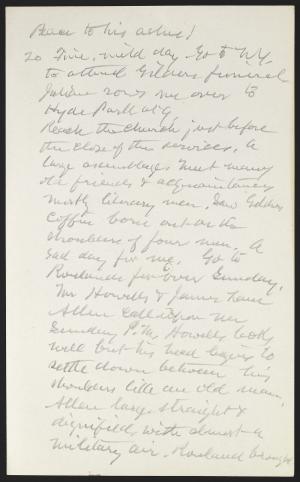 Peace to his ashes!
20 Fine, mild day. Go to N.Y.
to attend Gilders funeral
Julian rows me over to
Hyde Park at 9
Reach the church just before
the close of the services. A
large assemblage. Meet many
old friends & acquaintances
mostly literary men. Saw Gilders
coffin borne out on the
shoulders of four men. A
sad day for me. Go to
Rowlands for over Sunday.
Mr Howells & James Lane
Allen call upon me
Sunday P.M. Howells looks
well but his head begins to
settle down between his
shoulders like an old man.
Allen large straight &
dignified, with almost a
military air. Rowland brought